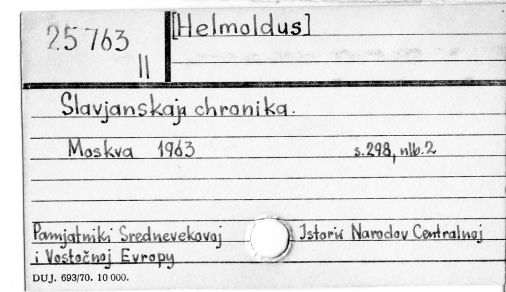 [Helmoldus]
25 763
II
Slavjanskaja chronika.
Moskva 1963 s.298, nlb.2
Pamjatniki Srednevekovoj Istorii Narodov Centralnoj
i Vostočnoj Evropy
DUJ. 693/70. 10 000.